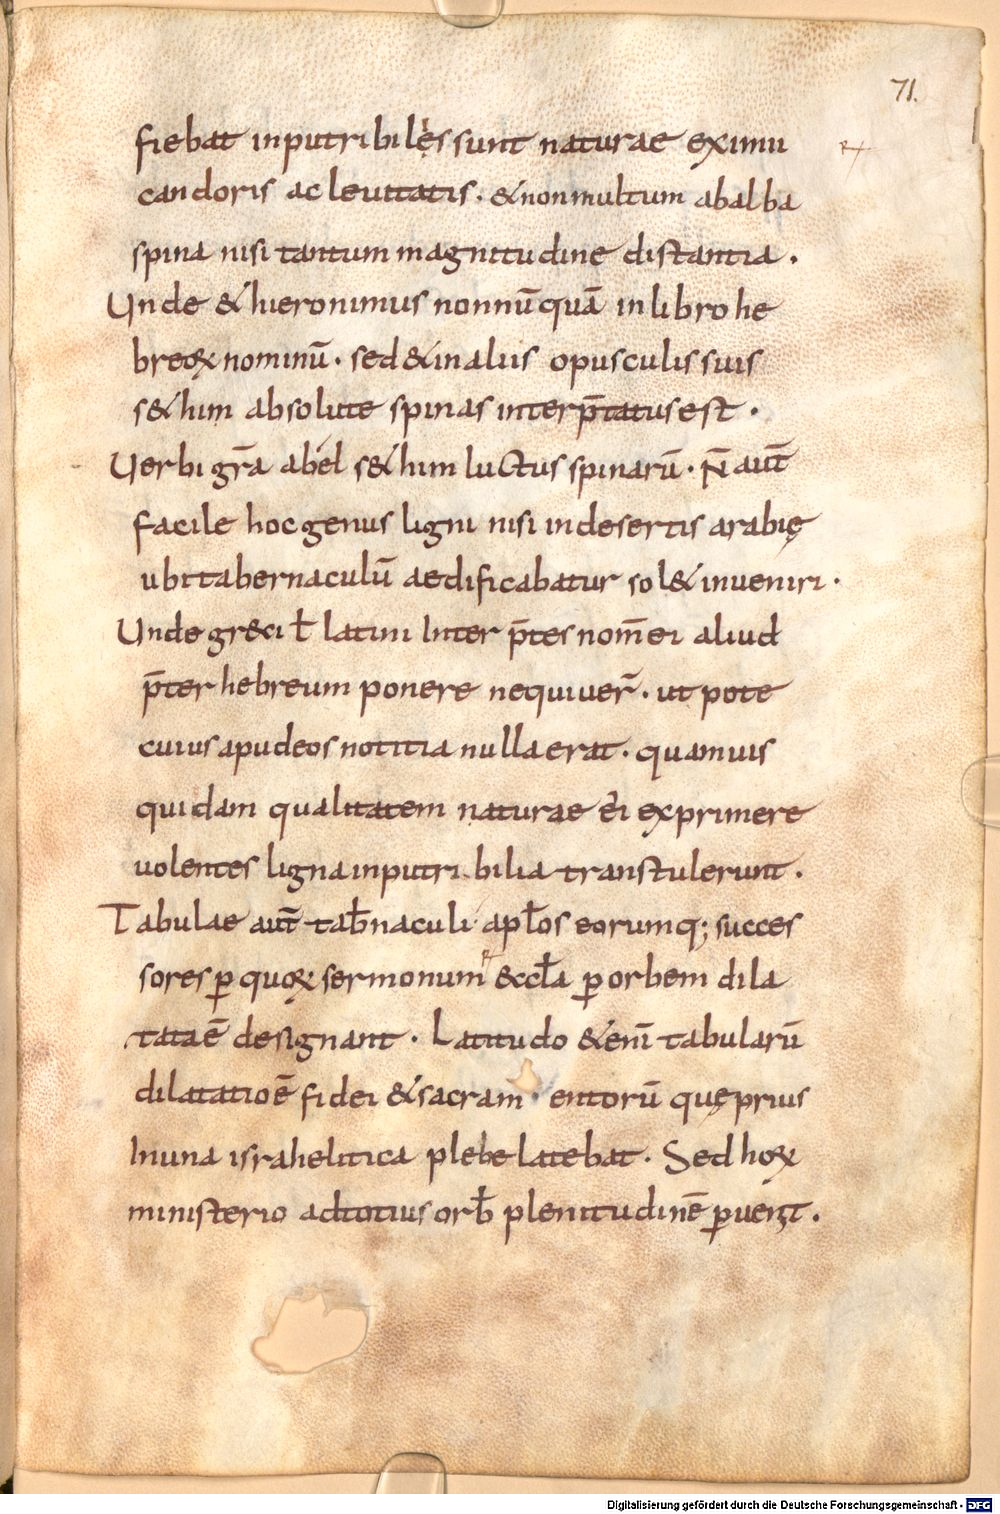 71.
fiebat inputribiles sunt naturae eximii
candoris ac leuitatis. & non multum ab alba
spina nisi tantum magnitudine distantia.
Unde & hieronimus nonnūquā in libro he
breoꝝ nominū. sed & in aliis opusculis suis
s&him absolute spinas interp̄tatus est.
Uerbi gr̄a abel s&him luctus spinarū. N̄ aut̄
facile hoc genus ligni nisi in desertis arabię
ubi tabernaculū aedificabatur sol& inueniri.
Unde greci ł latini Inter p̄tes nom̄ ei aliud
p̄ter hebreum ponere nequiuer̄. ut pote
cuius apud eos notitia nulla erat. quamuis
quidam qualitatem naturae ei exprimere
uolentes ligna inputribilia transtulerunt.
Tabulae aut̄ tab̄naculi apłos eorumq; succes
sores ꝑ quoꝝ sermonum &ccła ꝑ orbem dila
tata ē designant. Latitudo &enī tabularū
dilatatio ē fidei & sacramentorū quę prius
In una israhelitica plebe latebat. Sed hoꝝ
ministerio ad totius orb̄ plenitudinē ꝑuenit.
Digitalisierung gefördert durch die Deutsche Forschungsgemeinschaft - DFG